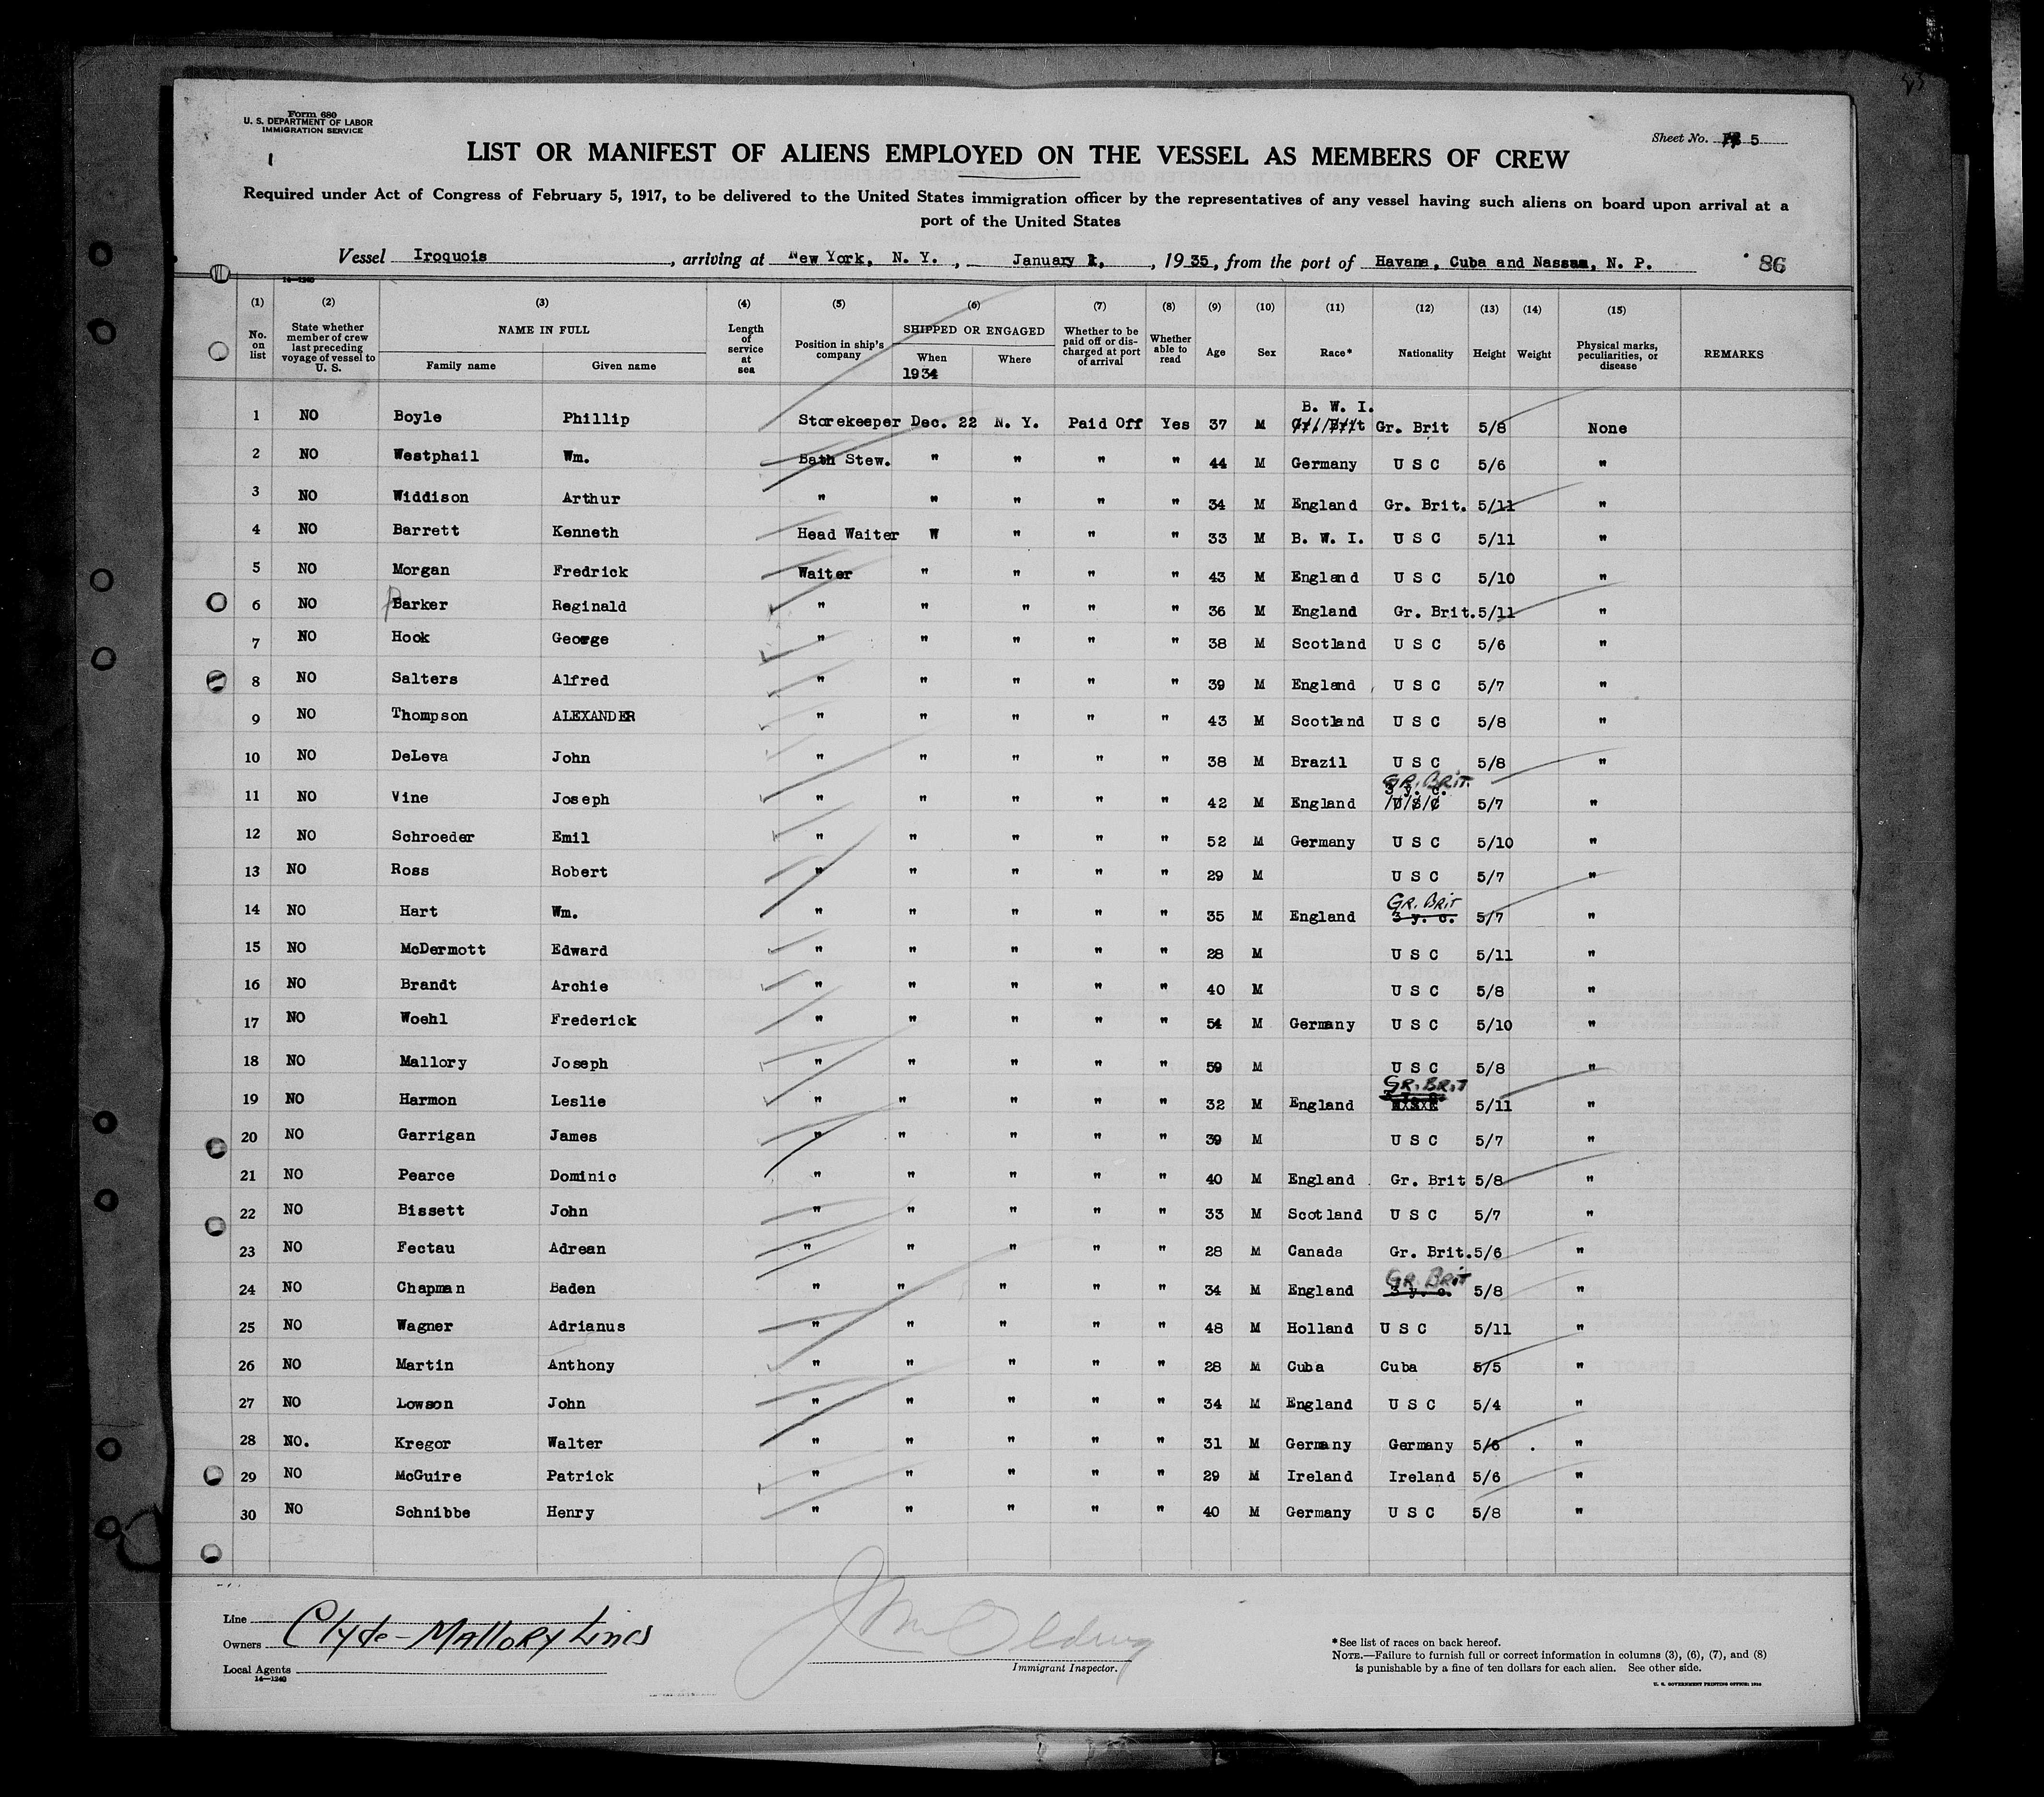 Form 680
U. S. DEPARTMENT OF LABOR
IMMIGRATION SERVICE
Sheet No. 5
LIST OR MANIFEST OF ALIENS EMPLOYED ON THE VESSEL AS MEMBERS OF CREW
Required under Act of Congress of February 5, 1917, to be delivered to the United States immigration officer by the representatives of any vessel having such aliens on board upon arrival at a
port of the United States
Vessel Iroquois, arriving at New York, N. Y., January 1, 1935, from the port of Havana, Cuba and Nassau, N. P. 86
14-1240
(1) (2) (3) (4) (5) (6) (7) (8) (9) (10) (11) (12) (13) (14) (15)
No. on list State whether member of crew last preceding voyage of vessel to U. S. NAME IN FULL Family name Given name Length of service at sea Position in ship's company SHIPPED OR ENGAGED When 1934 Where Whether to be paid off or discharged at port of arrival Whether able to read Age Sex Race* Nationality Height Weight Physical marks, peculiarities, or disease REMARKS
B. W. I.
1 NO Boyle Phillip Storekeeper Dec. 22 N. Y. Paid Off Yes 37 M Gr. Brit Gr. Brit 5/8 None
2 NO Westphail Wm. Bath Stew. " " " " 44 M Germany U S C 5/6 "
3 NO Widdison Arthur " " " " " 34 M England Gr. Brit. 5/11 "
4 NO Barrett Kenneth Head Waiter W " " " 33 M B. W. I. U S C 5/11 "
5 NO Morgan Fredrick Waiter " " " " 43 M England U S C 5/10 "
6 NO Barker Reginald " " " " " 36 M England Gr. Brit. 5/11 "
7 NO Hook George " " " " " 38 M Scotland U S C 5/6 "
8 NO Salters Alfred " " " " " 39 M England U S C 5/7 "
9 NO Thompson ALEXANDER " " " " " 43 M Scotland U S C 5/8 "
10 NO DeLeva John " " " " " 38 M Brazil U S C 5/8 "
GR. BRIT.
3 y. c.
11 NO Vine Joseph " " " " " 42 M England U S C 5/7 "
12 NO Schroeder Emil " " " " " 52 M Germany U S C 5/10 "
13 NO Ross Robert " " " " " 29 M U S C 5/7 "
GR. BRIT
14 NO Hart Wm. " " " " " 35 M England 3 y. c. 5/7 "
15 NO McDermott Edward " " " " " 28 M U S C 5/11 "
16 NO Brandt Archie " " " " " 40 M U S C 5/8 "
17 NO Woehl Frederick " " " " " 54 M Germany U S C 5/10 "
18 NO Mallory Joseph " " " " " 59 M U S C 5/8 "
GR. BRIT
19 NO Harmon Leslie " " " " " 32 M England 5/11 "
20 NO Garrigan James " " " " " 39 M U S C 5/7 "
21 NO Pearce Dominic " " " " " 40 M England Gr. Brit 5/8 "
22 NO Bissett John " " " " " 33 M Scotland U S C 5/7 "
23 NO Fectau Adrean " " " " " 28 M Canada Gr. Brit. 5/6 "
GR. BRIT
24 NO Chapman Baden " " " " " 34 M England 3 y. c. 5/8 "
25 NO Wagner Adrianus " " " " " 48 M Holland U S C 5/11 "
26 NO Martin Anthony " " " " " 28 M Cuba Cuba 5/5 "
27 NO Lowson John " " " " " 34 M England U S C 5/4 "
28 NO. Kregor Walter " " " " " 31 M Germany Germany 5/6 . "
29 NO McGuire Patrick " " " " " 29 M Ireland Ireland 5/6 "
30 NO Schnibbe Henry " " " " " 40 M Germany U S C 5/8 "
Line
Owners Clyde-Mallory Lines
Local Agents
14-1240
Immigrant Inspector.
*See list of races on back hereof.
NOTE.—Failure to furnish full or correct information in columns (3), (6), (7), and (8)
is punishable by a fine of ten dollars for each alien. See other side.
U. S. GOVERNMENT PRINTING OFFICE: